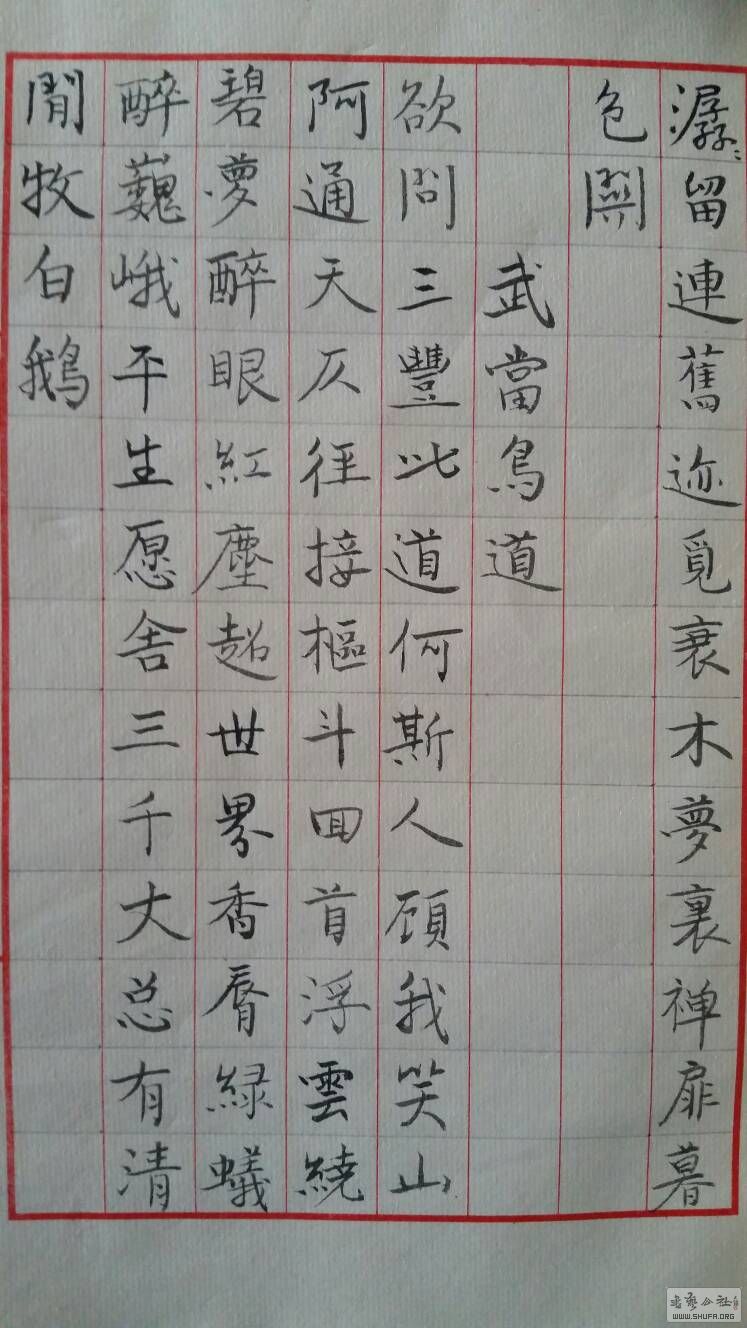 潺〻留連舊迹覓衰木夢裏禅扉暮
色関
武當鳥道
欲問三豐此道何斯人顧我笑山
阿通天仄徑接樞斗回首浮雲繞
碧夢醉眼紅塵超世界香脣緑蟻
醉巍峨平生愿舍三千大总有清
閒牧白鹅
WWW.SHUFA.ORG